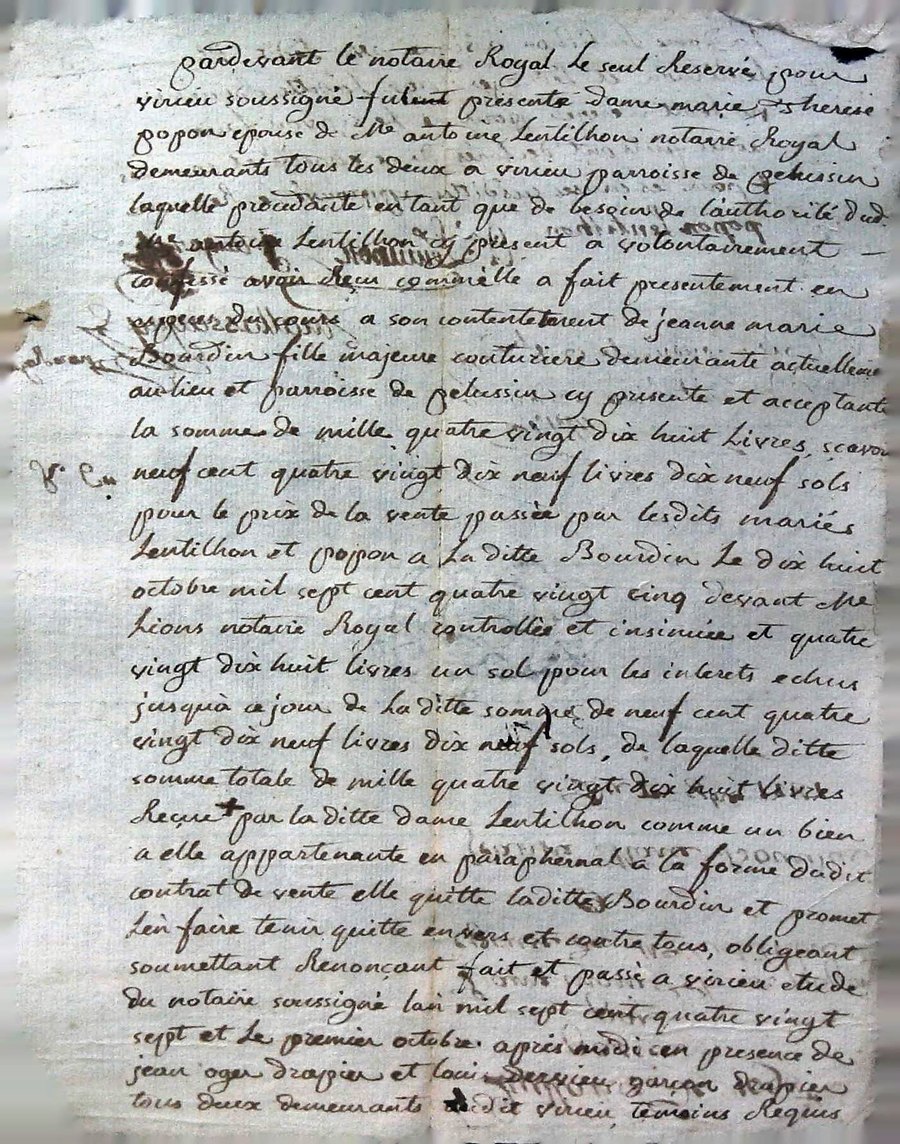 pardevant le notaire Royal Le seul Reservé pour
virieu soussigné furent presents dame marie Therese
popon epouse de Me antoine Lentilhon notaire Royal
demeurants tous les deux a virieu parroisse de pelussin
laquelle procédante en tant que de besoin de l'authorité dud.
Me antoine Lentilhon cy present a volontairement
confessé avoir Reçu comme elle a fait presentement en
especes du cours a son contentement de jeanne marie
Bourdin fille majeure couturiere demeurante actuelleme
au lieu et parroisse de pelussin cy presente et acceptante
la somme de mille quatre vingt dix huit Livres, scavoir
neuf cent quatre vingt dix neuf livres dix neuf sols
pour le prix de la vente passée par lesdits mariés
Lentilhon et popon a La ditte Bourdin Le dix huit
octobre mil sept cent quatre vingt cinq devant Me
Lions notaire Royal controllée et insinuée et quatre
vingt dix huit livres un sol pour les interets echus
jusqu'à ce jour de La ditte somme de neuf cent quatre
vingt dix neuf livres dix neuf sols, de laquelle ditte
somme totale de mille quatre vingt dix huit livres
Reçue par la ditte dame Lentilhon comme un bien
a elle appartenante en paraphernal a la forme dudit
contrat de vente elle quitte laditte Bourdin et promet
L'en faire tenir quitte envers et contre tous, obligeant
soumettant Renonçant fait et passé a virieu etude
du notaire soussigné l'an mil sept cent quatre vingt
sept et Le premier octobre après midi en presence de
jean oger drapier et louis dervieu garçon drapier
tous deux demeurants audit virieu temoins Requis